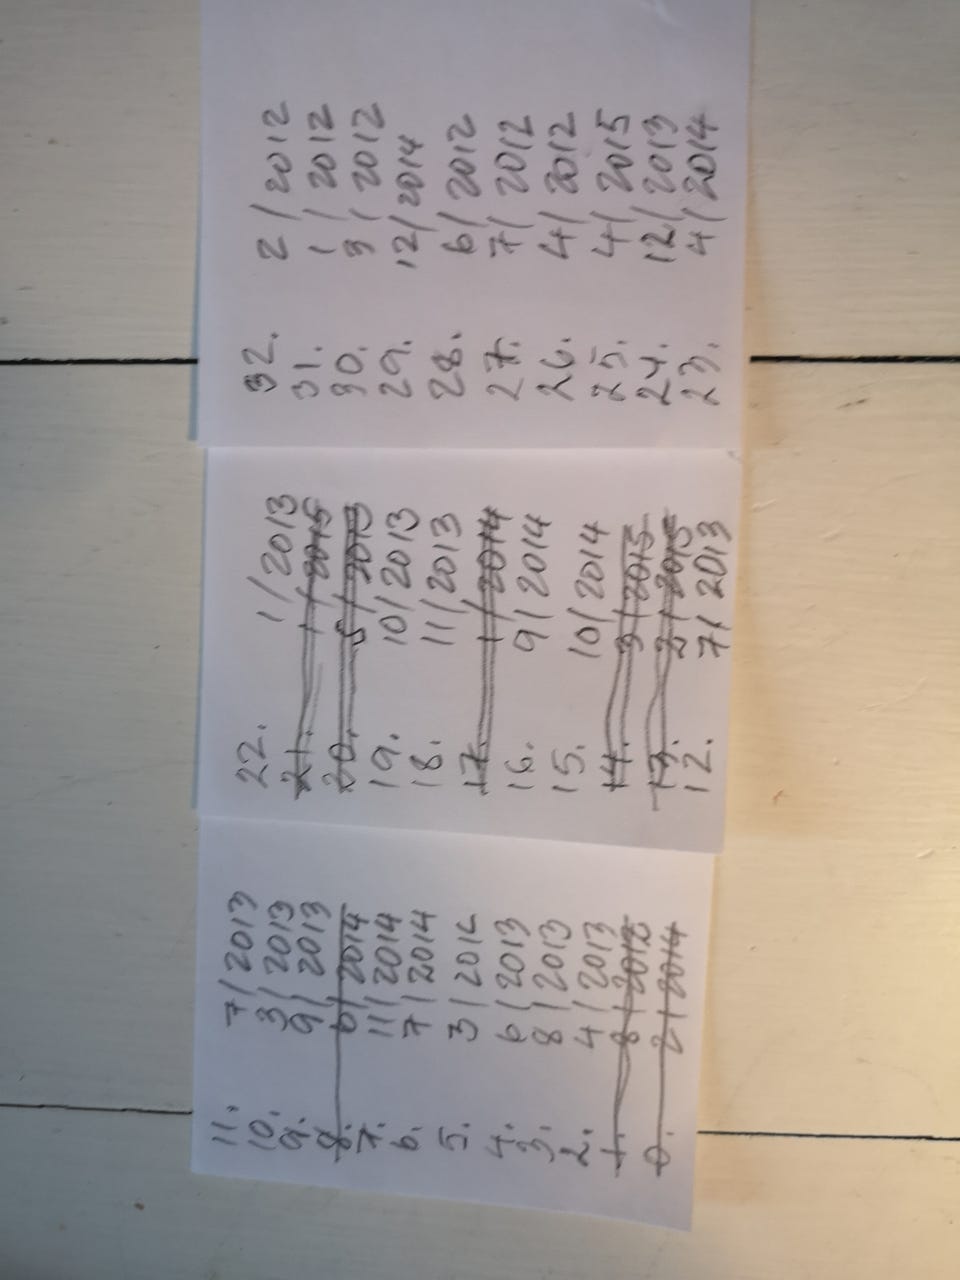 11. 7/2013
10. 3/2013
9. 9/2013
8. 6/2014
7. 11/2014
6. 7/2014
5. 3/2014
4. 6/2013
3. 8/2013
2. 4/2013
1. 8/
0. 2/2014
22. 1/2013
21. 1/2015
20. 5/2013
19. 10/2013
18. 11/2013
17. 1/2014
16. 9/2014
15. 10/2014
14. 3/2015
13. 2/2015
12. 7/2013
32. 2/2012
31. 1/2012
30. 3/2012
29. 12/2014
28. 6/2012
27. 7/2012
26. 4/2012
25. 4/2015
24. 12/2013
23. 4/2014